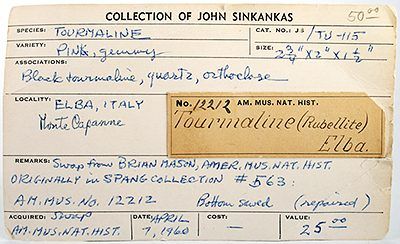 COLLECTION OF JOHN SINKANKAS
50.00
SPECIES: TOURMALINE
CAT. NO.: JS/TU-115
VARIETY: Pink, gemmy
SIZE: 2 3/4" x 2" x 1 1/2"
ASSOCIATIONS:
Black tourmaline, quartz, orthoclase
LOCALITY: ELBA, ITALY
Monte Capanne
No. 12212 AM. MUS. NAT. HIST.
Tourmaline (Rubellite)
Elba.
REMARKS: Swap from BRIAN MASON, AMER. MUS. NAT. HIST.
ORIGINALLY in SPANG COLLECTION # 563.
A.M. MUS. No. 12212 Bottom sawed (repaired)
ACQUIRED: Swap
AM. MUS. NAT. HIST.
DATE: APRIL
7, 1960
COST: —
VALUE:
25.00